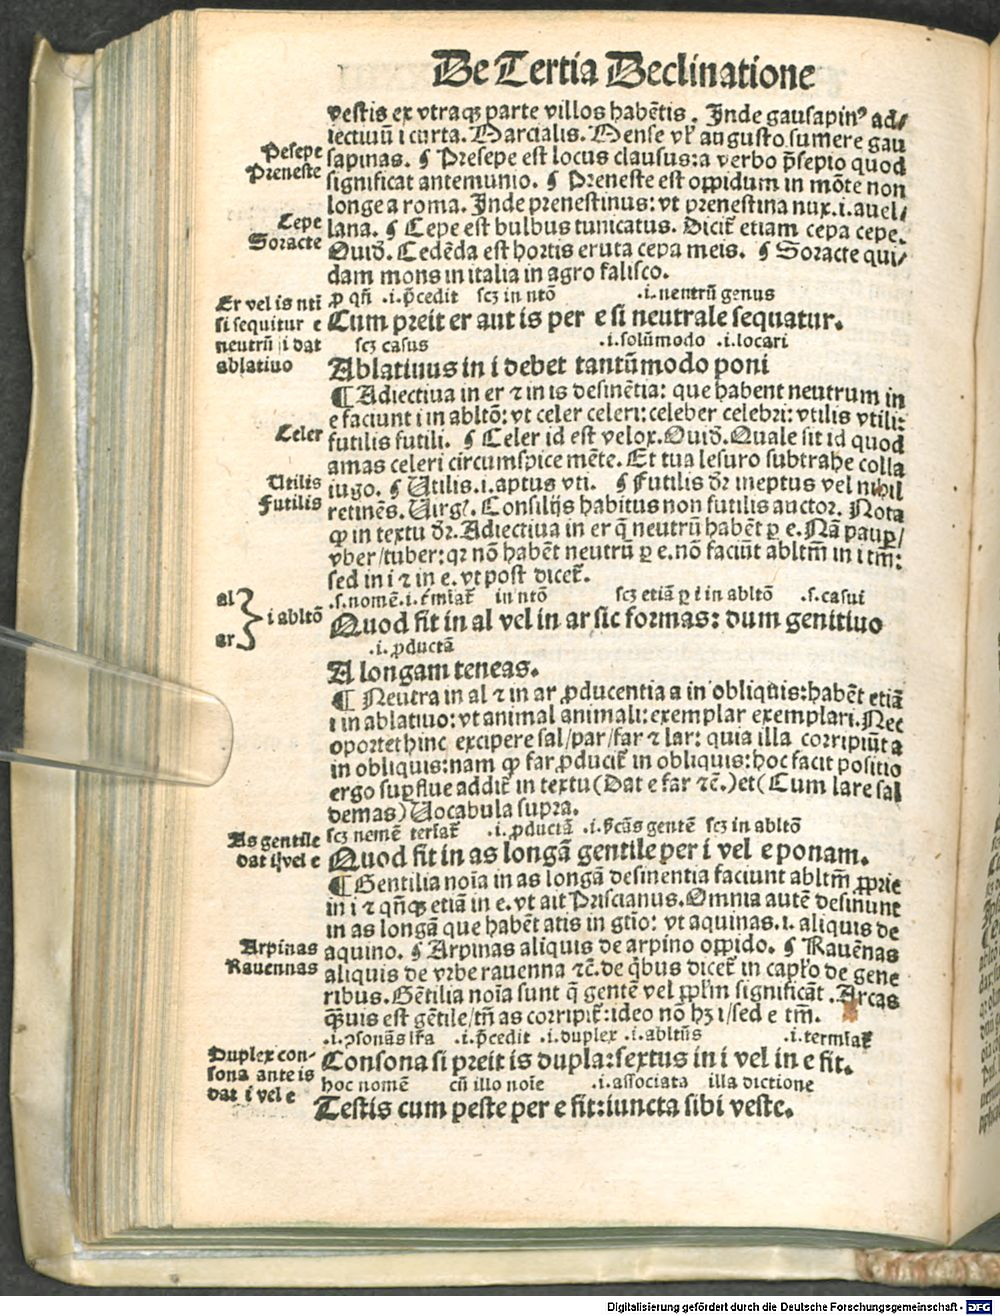 De Tertia Declinatione
vestis ex vtraqꝫ parte villos habētis. Inde gausapinꝰ ad/
iectiuū i curta. Martialis. Mense vł augusto sumere gau
Pesepe
sapinas. ¶ Presepe est locus clausus: a verbo p̄sepio quod
Preneste
significat antemunio. ¶ Preneste est oppidum in mōte non
longe a roma. Inde prenestinus: vt prenestina nux .i. auel/
Cepe
lana. ¶ Cepe est bulbus tunicatus. Dicit̄ etiam cepa cepe.
Soracte
Ouid. Cedēda est hortis eruta cepa meis. ¶ Soracte qui/
dam mons in italia in agro falisco.
Er vel is nti
ꝓ qñ .i. p̄cedit scꝫ in ntō .i. neutrū genus
si sequitur e
Cum preit er aut is per e si neutrale sequatur.
neutrū i dat
scꝫ casus .i. solūmodo .i. locari
ablatiuo
Ablatiuus in i debet tantūmodo poni
¶ Adiectiua in er ⁊ in is desinētia: que habent neutrum in
e faciunt i in abltō: vt celer celeri: celeber celebri: vtilis vtili:
Celer
futilis futili. ¶ Celer id est velox. Ouid. Quale sit id quod
amas celeri circumspice mēte. Et tua lesuro subtrahe colla
Utilis
iugo. ¶ Utilis .i. aptus vti. ¶ Futilis dr̄ ineptus vel nihil
Futilis
retinēs. Uirgꝉ. Consilijs habitus non futilis auctor. Nota
ꝙ in textu dr̄. Adiectiua in er q̄ neutrū habēt ꝑ e. Nā paupꝑ/
vber/tuber: qꝛ nō habēt neutrū ꝑ e. nō faciūt abltm̄ in i tm̄:
sed in i ⁊ in e. vt post dicet̄.
al
ar
i abltō
.s. nomē .i. t̄miat̄ in ntō scꝫ etiā ꝑ i in abltō .s. casui
Quod fit in al vel in ar sic formas: dum genitiuo
.i. ꝓductā
A longam teneas.
¶ Neutra in al ⁊ in ar ꝓducentia a in obliquis: habēt etiā
i in ablatiuo: vt animal animali: exemplar exemplari. Nec
oportet hinc excipere sal/par/far ⁊ lar: quia illa corripiūt a
in obliquis: nam ꝙ far ꝓducit̄ in obliquis: hoc facit positio
ergo suꝑflue addit̄ in textu (Dat e far ⁊c̄.) et (Cum lare sal
demas) Uocabula supra.
As gentile
scꝫ nomē terīat̄ .i. ꝓductā .i. s̄cās gentē scꝫ in abltō
dat i vel e
Quod fit in as longā gentile per i vel e ponam.
¶ Gentilia noīa in as longā desinentia faciunt abltm̄ ꝓprie
in i ⁊ qn̄qꝫ etiā in e. vt ait Priscianus. Omnia autē desinunt
in as longā que habēt atis in gtīo: vt aquinas .i. aliquis de
Arpinas
aquino. ¶ Arpinas aliquis de arpino oppido. ¶ Rauēnas
Rauennas
aliquis de vrbe rauenna ⁊c̄. de q̄bus dicet̄ in capłō de gene
ribus. Gētilia noīa sunt q̄ gentē vel ppłm significāt. Arcas
q̄uis est gētile/tn̄ as corripit̄: ideo nō hꝫ i/sed e tm̄.
.i. ꝯsonās lr̄a .i. p̄cedit .i. duplex .i. abltūs .i. termīat̄
Duplex con-
sona ante is
Consona si preit is dupla: sextus in i vel in e fit.
dat i vel e
hoc nomē cū illo noīe .i. associata illa dictione
Testis cum peste per e fit: iuncta sibi veste.
Digitalisierung gefördert durch die Deutsche Forschungsgemeinschaft - DFG